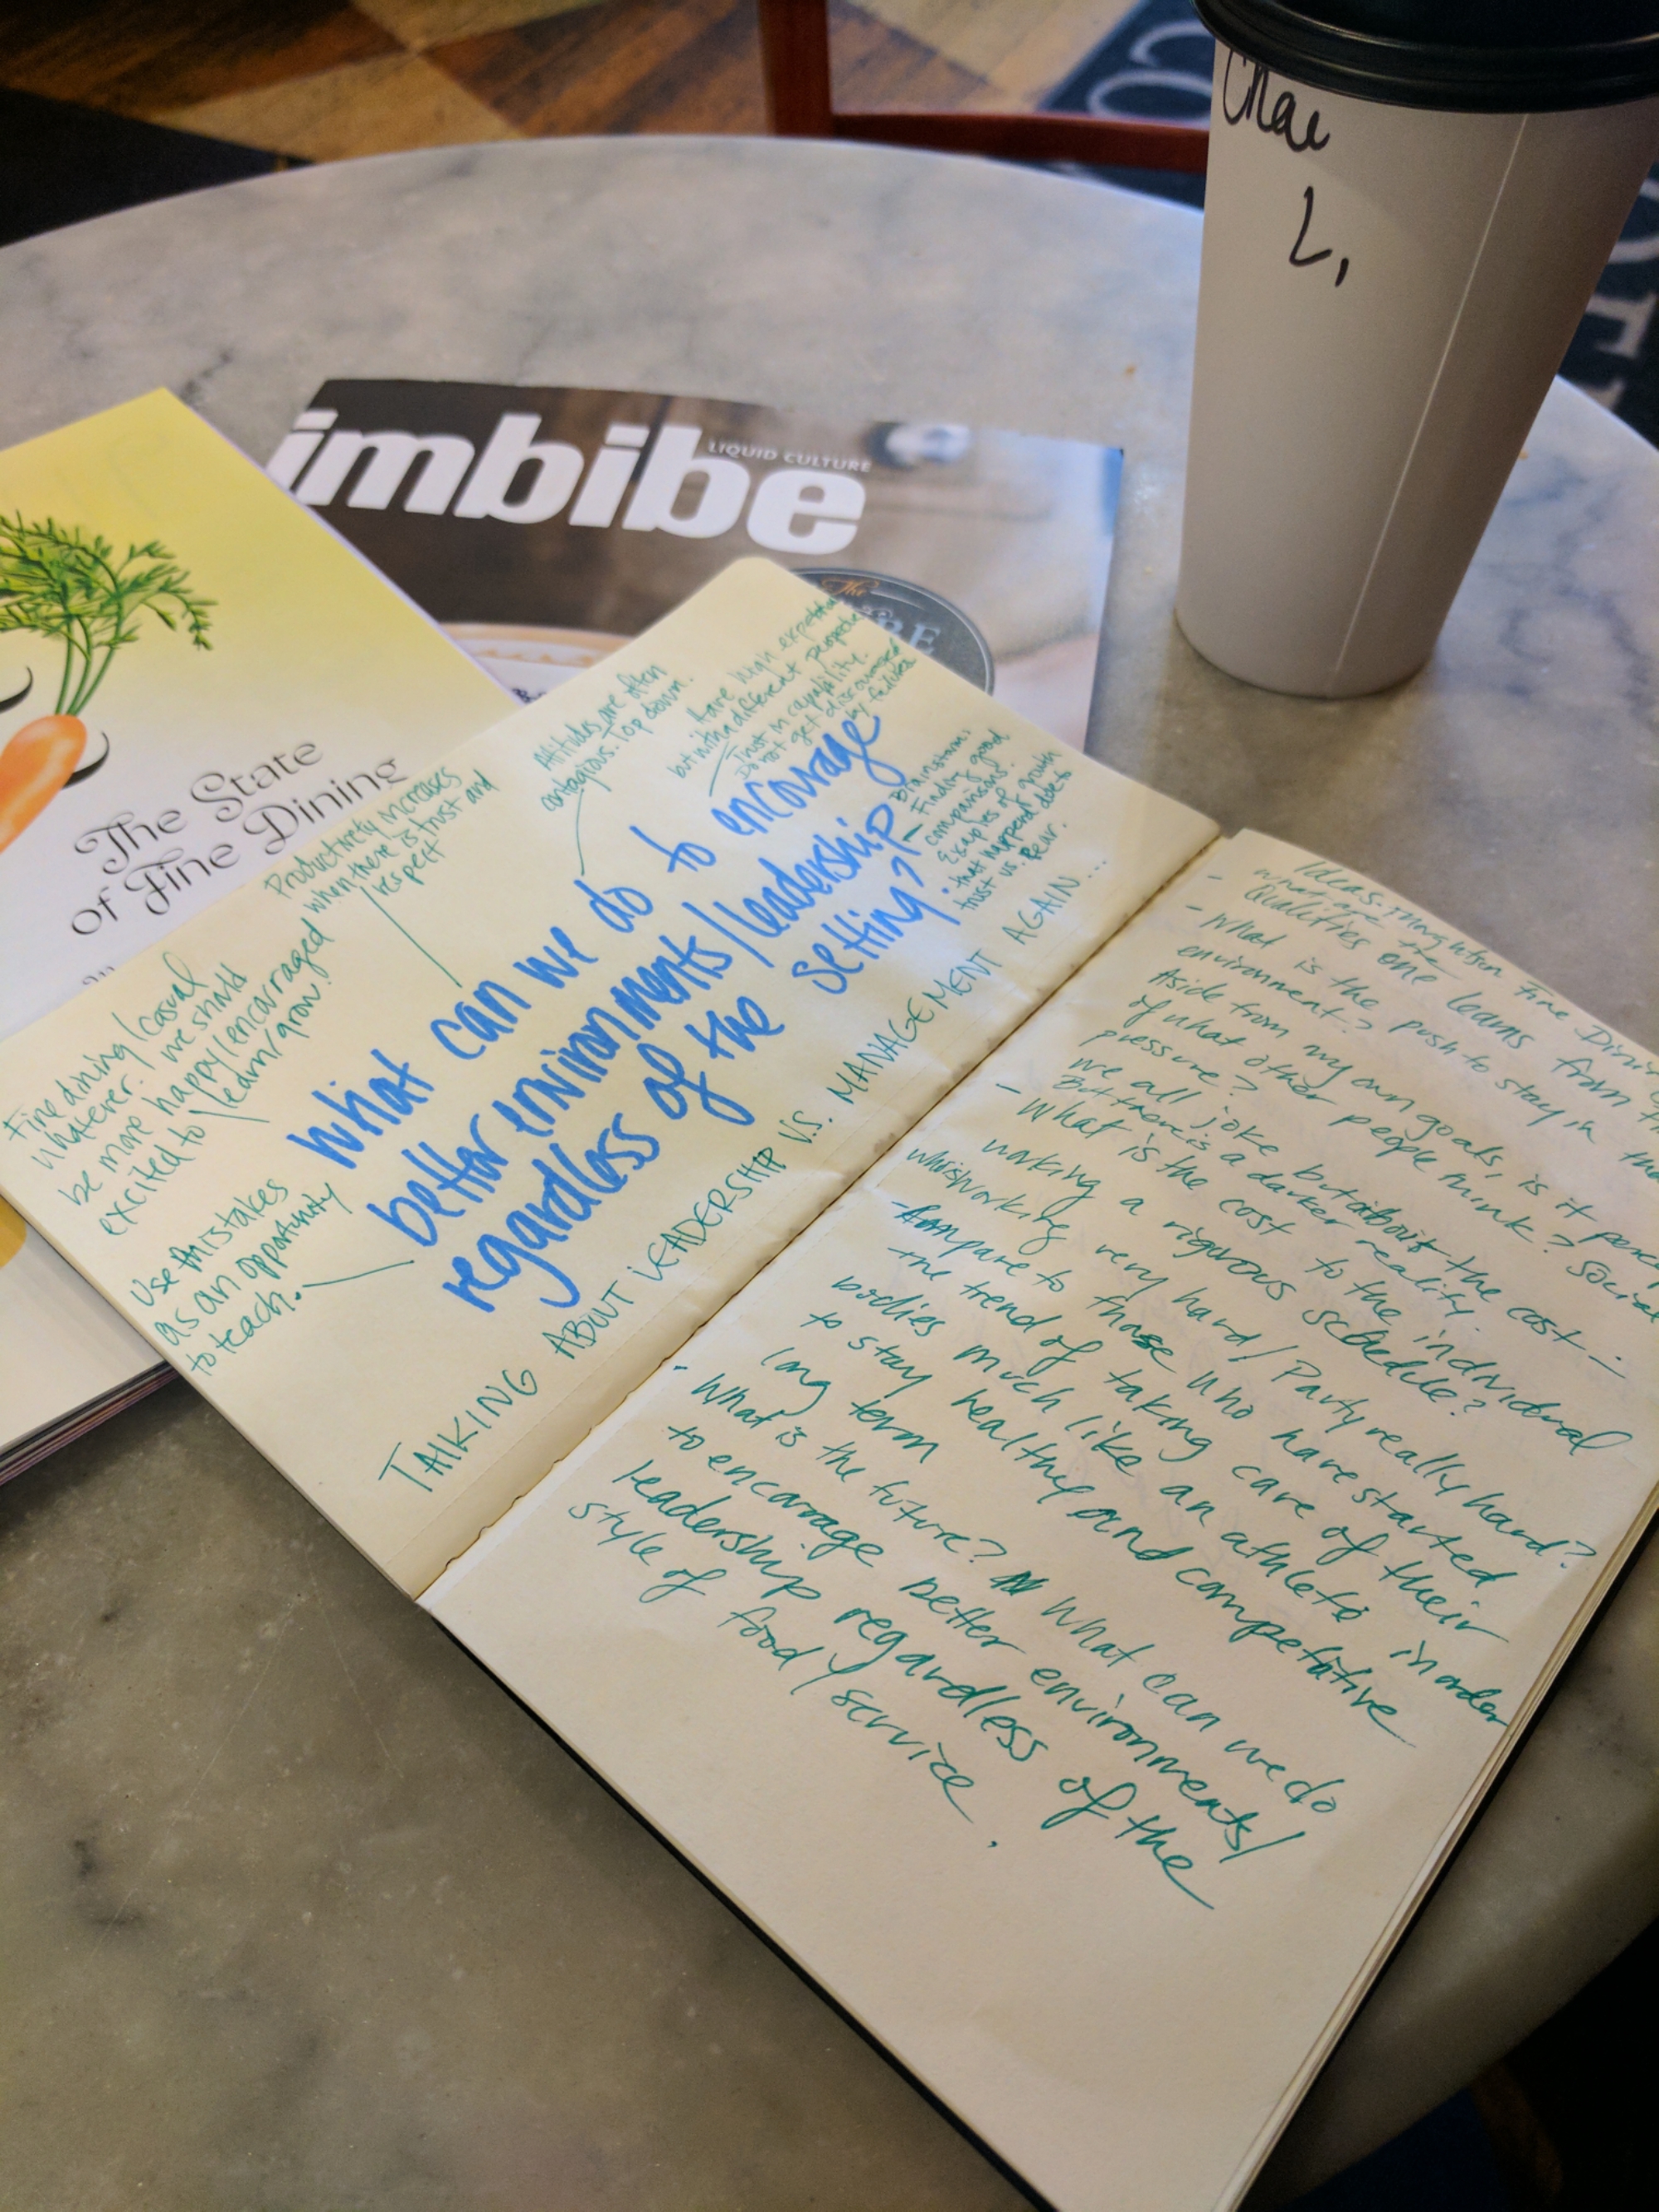 Chai
L,
imbibe
LIQUID CULTURE
The
The State
of Fine Dining
Fine dining/casual
whatever. We should
be more happy/encouraged
excited to learn/grow.
Productivity increases
when there is trust and
respect
Attitudes are often
contagious. Top down.
Have high
but with a different perspective
Trust in capability.
Do not get discouraged
by failures
Brainstorm:
- Finding good
comparisons.
Exaples of growth
that happend due to
trust vs. Fear.
Use mistakes
as an opportunity
to teach.
What can we do to encourage
better environments/leadership
regardless of the setting?
TALKING ABOUT LEADERSHIP V.S. MANAGEMENT AGAIN...
Ideas: Fine Dining
- what are the
Qualities one learns from
- What is the push to stay in that
environment?
Aside from my own goals, is it
of what other people think? Social
pressure?
we all joke about the cost -
But there is a darker reality.
- What is the cost to the individual
working a rigorous schedule?
who is working very hard/Party really hard?
- Compare to those who have started
the trend of taking care of their
bodies much like an athlete in order
to stay healthy and competative
long term
- What is the future? What can we do
to encourage better environments/
leadership regardless of the
style of food/service.